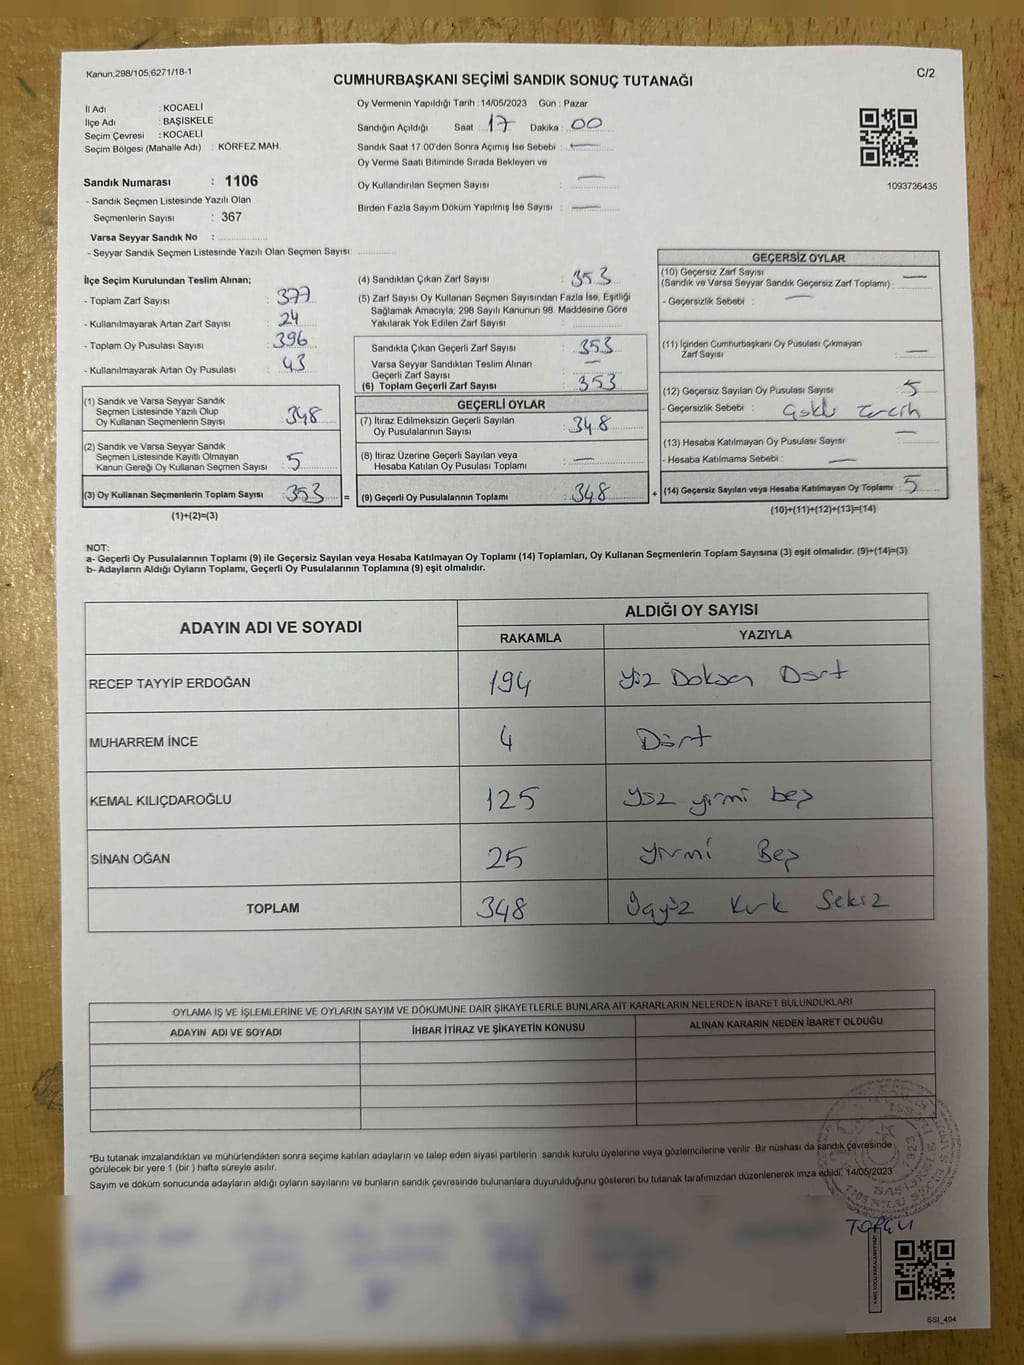 Kanun,298/105;6271/18-1
C/2
CUMHURBAŞKANI SEÇİMİ SANDIK SONUÇ TUTANAĞI
İl Adı : KOCAELİ
İlçe Adı : BAŞİSKELE
Seçim Çevresi : KOCAELİ
Seçim Bölgesi (Mahalle Adı) : KÖRFEZ MAH.
Sandık Numarası : 1106
- Sandık Seçmen Listesinde Yazılı Olan
Seçmenlerin Sayısı : 367
Varsa Seyyar Sandık No :
- Seyyar Sandık Seçmen Listesinde Yazılı Olan Seçmen Sayısı:
Oy Vermenin Yapıldığı Tarih : 14/05/2023 Gün : Pazar
Sandığın Açıldığı Saat : 17 Dakika : 00
Sandık Saat 17.00'den Sonra Açımış İse Sebebi : —
Oy Verme Saati Bitiminde Sırada Bekleyen ve
Oy Kullandırılan Seçmen Sayısı : —
Birden Fazla Sayım Döküm Yapılmış İse Sayısı : —
1093736435
İlçe Seçim Kurulundan Teslim Alınan;
- Toplam Zarf Sayısı : 377
- Kullanılmayarak Artan Zarf Sayısı : 24
- Toplam Oy Pusulası Sayısı : 396
- Kullanılmayarak Artan Oy Pusulası : 43
(1) Sandık ve Varsa Seyyar Sandık
Seçmen Listesinde Yazılı Olup
Oy Kullanan Seçmenlerin Sayısı : 348
(2) Sandık ve Varsa Seyyar Sandık
Seçmen Listesinde Kayıtlı Olmayan
Kanun Gereği Oy Kullanan Seçmen Sayısı : 5
(3) Oy Kullanan Seçmenlerin Toplam Sayısı : 353 =
(1)+(2)=(3)
(4) Sandıktan Çıkan Zarf Sayısı : 353
(5) Zarf Sayısı Oy Kullanan Seçmen Sayısından Fazla İse, Eşitliği
Sağlamak Amacıyla; 298 Sayılı Kanunun 98. Maddesine Göre
Yakılarak Yok Edilen Zarf Sayısı :
Sandıkta Çıkan Geçerli Zarf Sayısı : 353
Varsa Seyyar Sandıktan Teslim Alınan
Geçerli Zarf Sayısı : —
(6) Toplam Geçerli Zarf Sayısı : 353
GEÇERLİ OYLAR
(7) İtiraz Edilmeksizin Geçerli Sayılan
Oy Pusulalarının Sayısı : 348
(8) İtiraz Üzerine Geçerli Sayılan veya
Hesaba Katılan Oy Pusulası Toplamı : —
(9) Geçerli Oy Pusulalarının Toplamı : 348 +
GEÇERSİZ OYLAR
(10) Geçersiz Zarf Sayısı : —
(Sandık ve Varsa Seyyar Sandık Geçersiz Zarf Toplamı)
- Geçersizlik Sebebi : —
(11) İçinden Cumhurbaşkanı Oy Pusulası Çıkmayan
Zarf Sayısı : —
(12) Geçersiz Sayılan Oy Pusulası Sayısı : 5
- Geçersizlik Sebebi : Tercih
(13) Hesaba Katılmayan Oy Pusulası Sayısı : —
- Hesaba Katılmama Sebebi : —
(14) Geçersiz Sayılan veya Hesaba Katılmayan Oy Toplamı : 5
(10)+(11)+(12)+(13)=(14)
NOT:
a- Geçerli Oy Pusulalarının Toplamı (9) ile Geçersiz Sayılan veya Hesaba Katılmayan Oy Toplamı (14) Toplamları, Oy Kullanan Seçmenlerin Toplam Sayısına (3) eşit olmalıdır. (9)+(14)=(3)
b- Adayların Aldığı Oyların Toplamı, Geçerli Oy Pusulalarının Toplamına (9) eşit olmalıdır.
ADAYIN ADI VE SOYADI ALDIĞI OY SAYISI
RAKAMLA YAZIYLA
RECEP TAYYİP ERDOĞAN 194 Yüz Doksan Dört
MUHARREM İNCE 4 Dört
KEMAL KILIÇDAROĞLU 125 Yüz yirmi beş
SİNAN OĞAN 25 Yirmi Beş
TOPLAM 348 Üçyüz Kırk Sekiz
OYLAMA İŞ VE İŞLEMLERİNE VE OYLARIN SAYIM VE DÖKÜMÜNE DAİR ŞİKAYETLERLE BUNLARA AİT KARARLARIN NELERDEN İBARET BULUNDUKLARI
ADAYIN ADI VE SOYADI İHBAR İTİRAZ VE ŞİKAYETİN KONUSU ALINAN KARARIN NEDEN İBARET OLDUĞU
*Bu tutanak imzalandıktan ve mühürlendikten sonra seçime katılan adayların ve talep eden siyasi partilerin sandık kurulu üyelerine veya gözlemcilerine verilir. Bir nüshası da sandık çevresinde
görülecek bir yere 1 (bir ) hafta süreyle asılır.
Sayım ve döküm sonucunda adayların aldığı oyların sayılarını ve bunların sandık çevresinde bulunanlara duyurulduğunu gösteren bu tutanak tarafımızdan düzenlenerek imza edildi. 14/05/2023
SSI_404